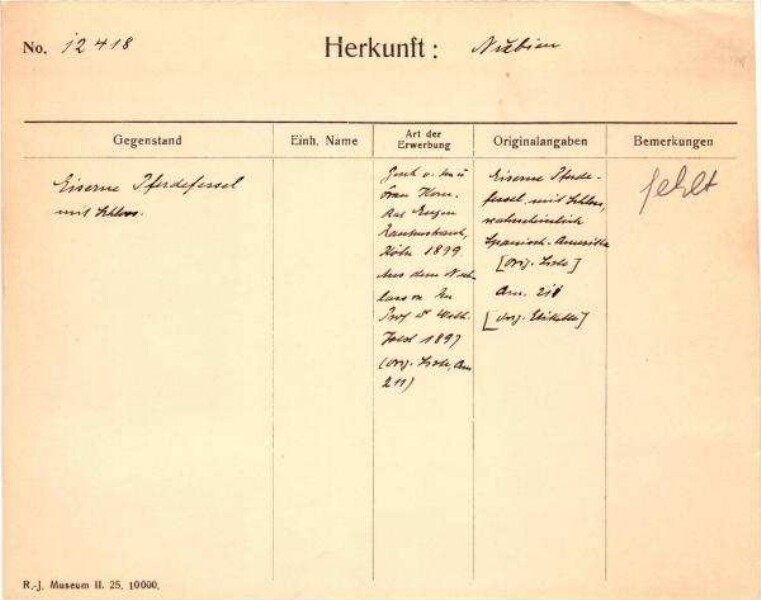 No. 12418 Herkunft: Nubien
Gegenstand Einh. Name Art der Erwerbung Originalangaben Bemerkungen
Eiserne Pferdefessel
mit Schloss.
Gesch. v. Herrn u
Frau Kom.
Rat Eugen
Rautenstrauch,
Köln 1899.
Aus dem Nach-
lass von Herrn
Prof Dr Wilh.
Joest 1897
(orig. Liste, Am
211)
Eiserne Pferde-
fessel mit Schloss,
wahrscheinlich
Spanisch-Amerika
[orig. Liste]
Am. 211
[orig. Etikette]
fehlt
R.-J. Museum II. 25. 10000.